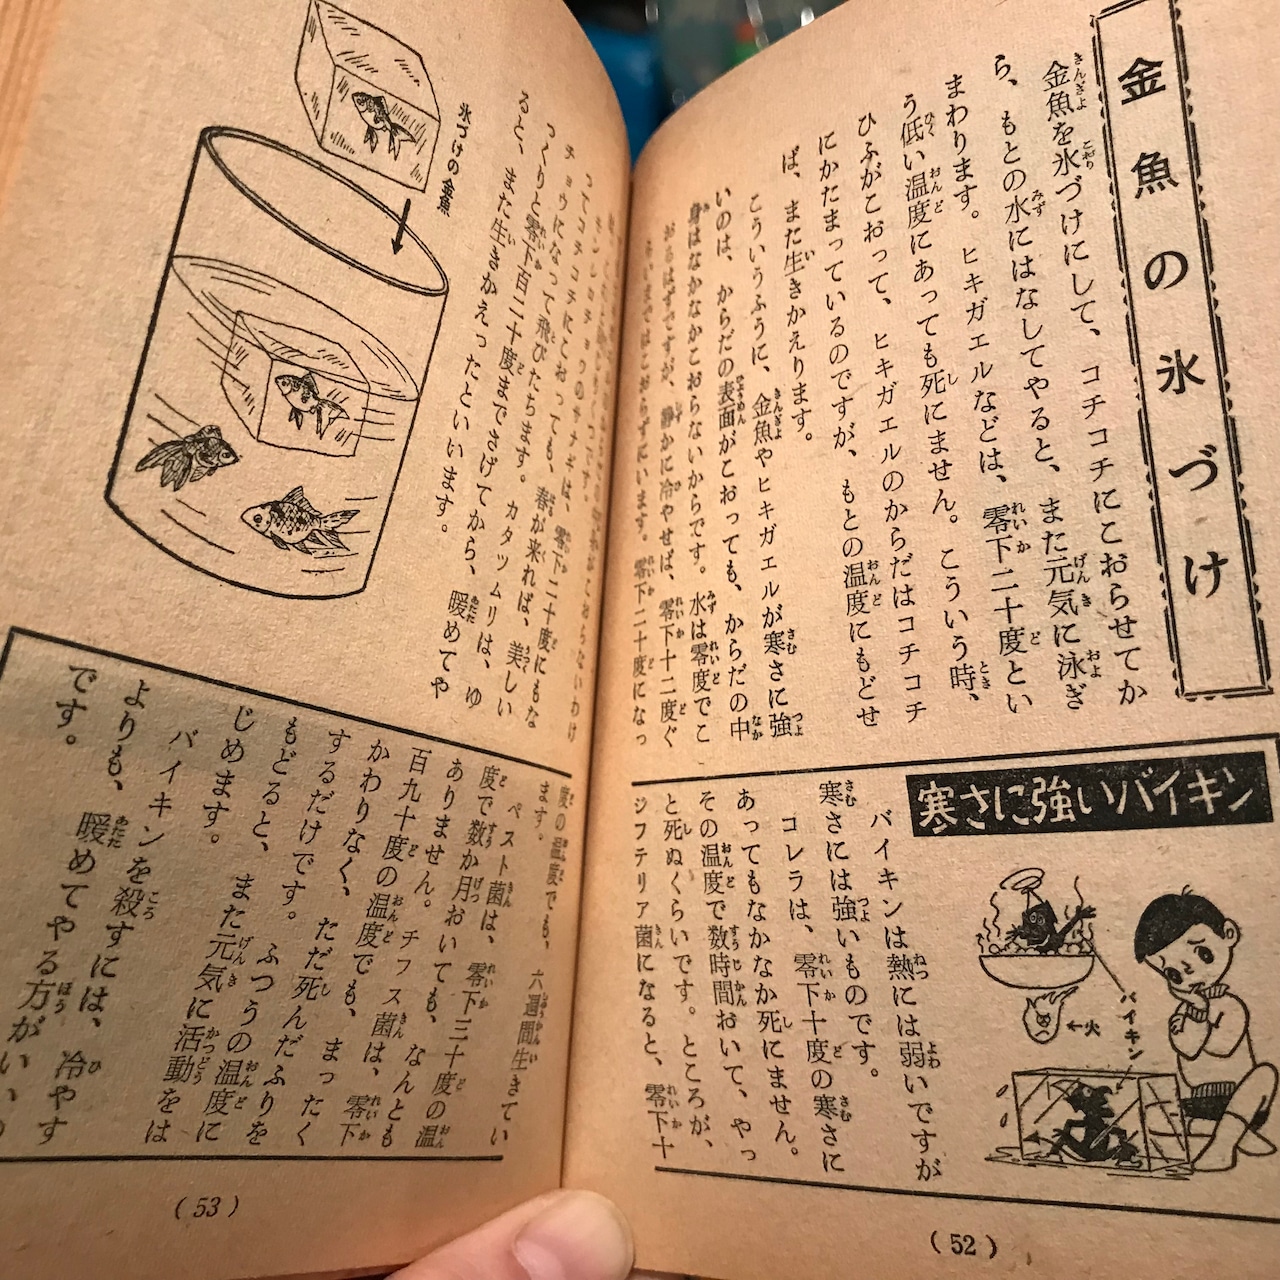 金魚の氷づけ
金魚を氷づけにして、コチコチにこおらせてか
ら、もとの水にはなしてやると、また元気に泳ぎ
まわります。ヒキガエルなどは、零下二十度とい
う低い温度にあっても死にません。こういう時、
ひふがこおって、ヒキガエルのからだはコチコチ
にかたまっているのですが、もとの温度にもどせ
ば、また生きかえります。
こういうふうに、金魚やヒキガエルが寒さに強
いのは、からだの表面がこおっても、からだの中
身はなかなかこおらないからです。水は零度でこ
おるはずですが、静かに冷やせば、零下十二度ぐ
らいまではこおらずにいます。零下二十度になっ
がこおらないわけ
です。
チョウのサナギは、零下二十度にもな
ってコチコチにこおっても、春が来れば、美しい
チョウになって飛びたちます。カタツムリは、ゆ
っくりと零下百二十度までさげてから、暖めてや
ると、また生きかえったといいます。
氷づけの金魚
寒さに強いバイキン
バイキン
←火
バイキンは熱には弱いですが
寒さには強いものです。
コレラは、零下十度の寒さに
あってもなかなか死にません。
その温度で数時間おいて、やっ
と死ぬくらいです。ところが、
ジフテリア菌になると、零下十
度の温度でも、六週間生きてい
ます。
ペスト菌は、零下三十度の温
度で数か月おいても、なんとも
ありません。チフス菌は、零下
百九十度の温度でも、まったく
かわりなく、ただ死んだふりを
するだけです。ふつうの温度に
もどると、また元気に活動をは
じめます。
バイキンを殺すには、冷やす
よりも、暖めてやる方がいいの
です。
(52)
(53)